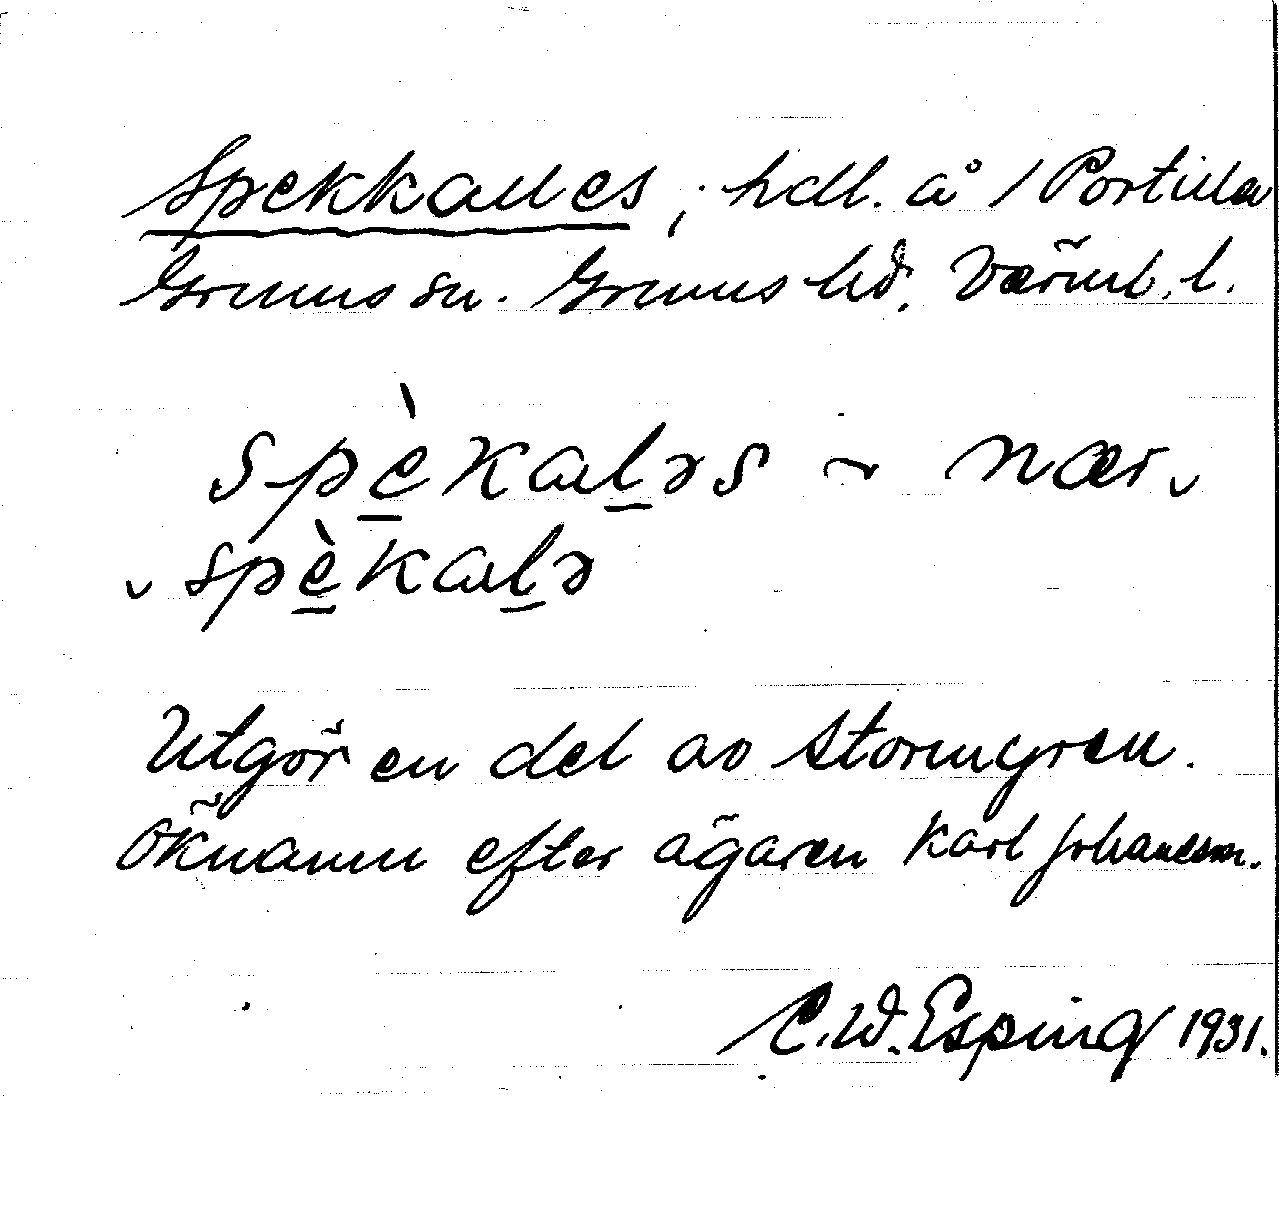 Spekkalles, hdl. å 1 Portilla
Grums sn. Grums hd. Värml. l.
spèkaḻəs ~ nær,
spèkaḻə
Utgör en del av Stormyren.
Öknamn efter ägaren Karl Johansson.
C.W. Esping 1931.